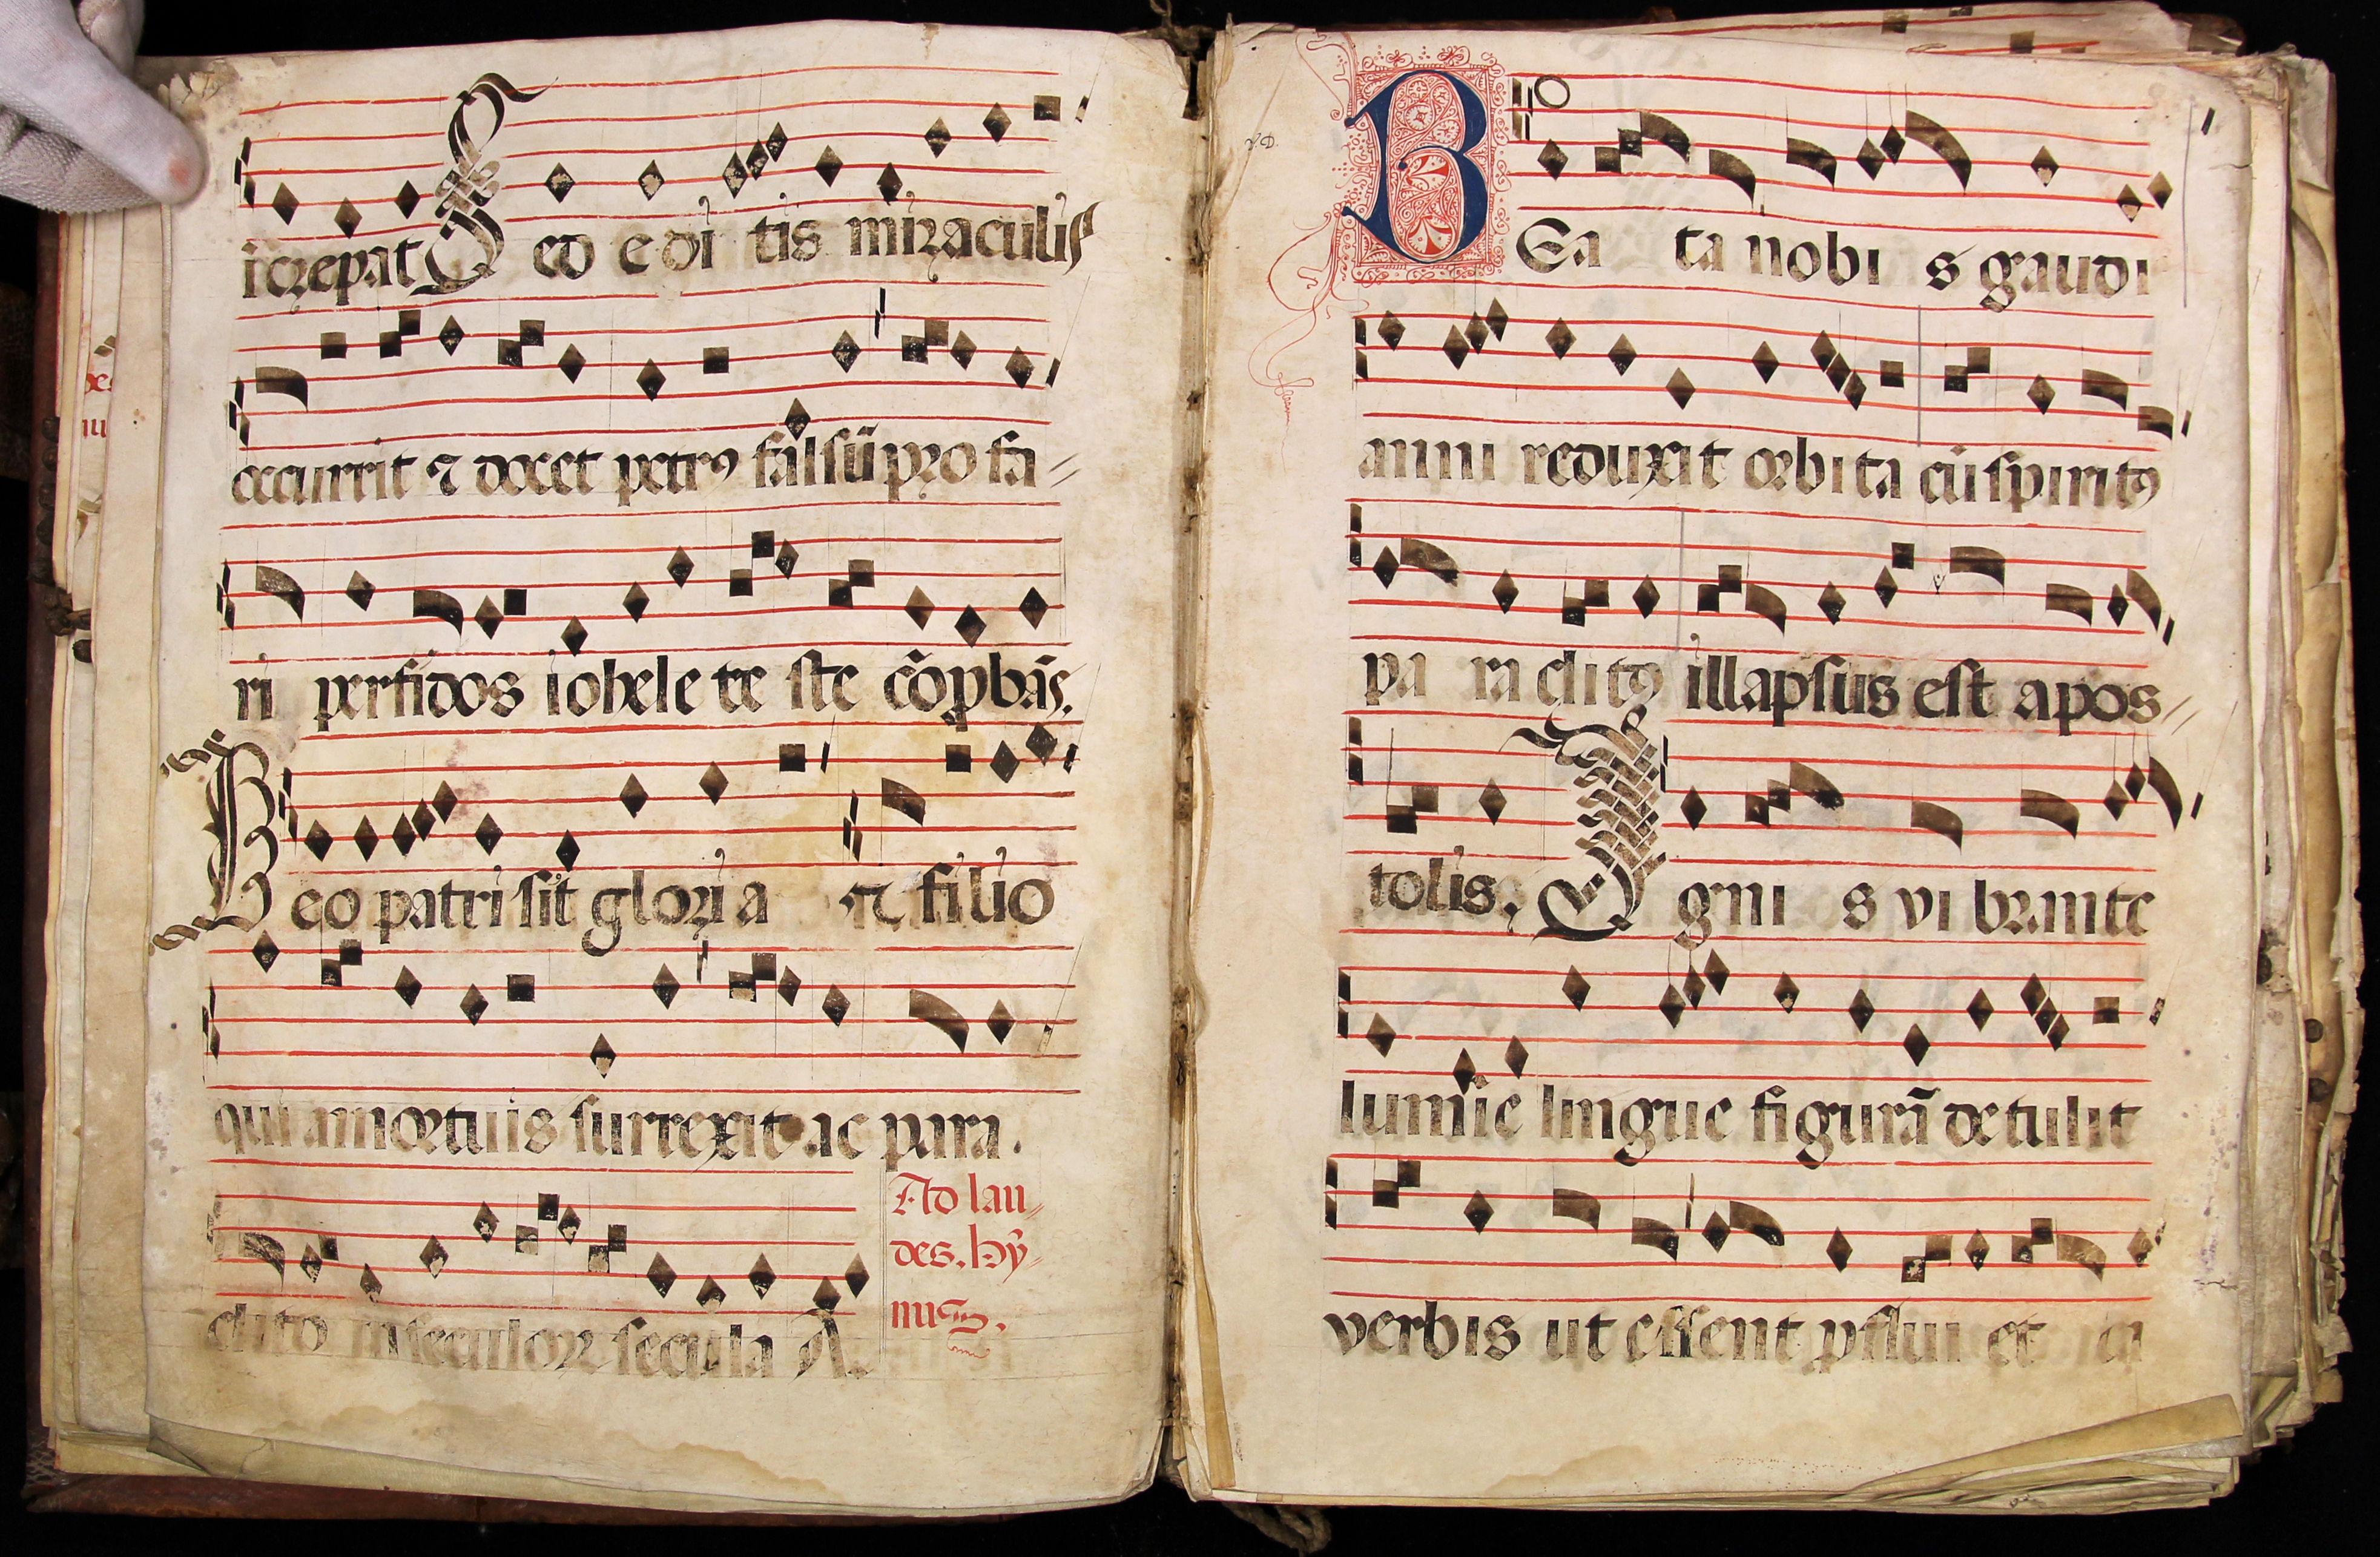 icrepat Sed editis miraculis
occurrit ⁊ docet petrꝰ falsū profa-
ri perfidos iohele teste cōprobās.
Deo patri sit gloria et filio
qui a mortuis surrexit ac para.
clito in seculoꝝ secula A.
Ad lau-
des. hy-
nus.
BEata nobis gaudi
a anni reduxit orbita cū spiritꝰ
paraclitꝰ illapsus est apos-
tolis. Ignis vibrante
lumie lingue figurā detulit
verbis ut essent ꝓflui et ca